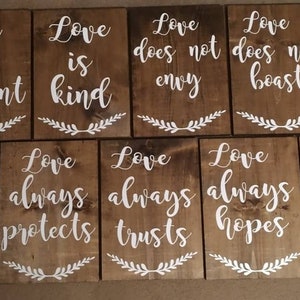 nt
Love
is
kind
Love
does not
envy
Love
does not
boast
Love
always
protects
Love
always
trusts
Love
always
hopes